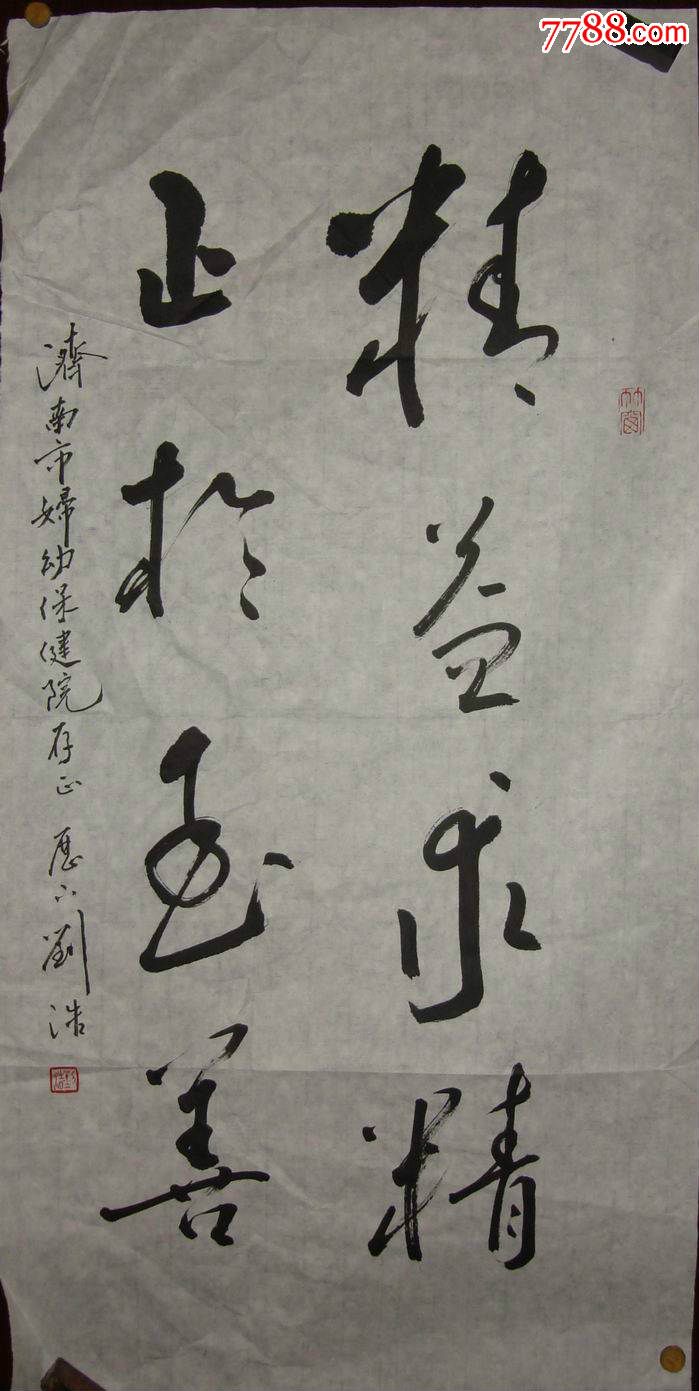 7788.com
精益求精
止於至善
濟南市婦幼保健院存正 歷下劉浩